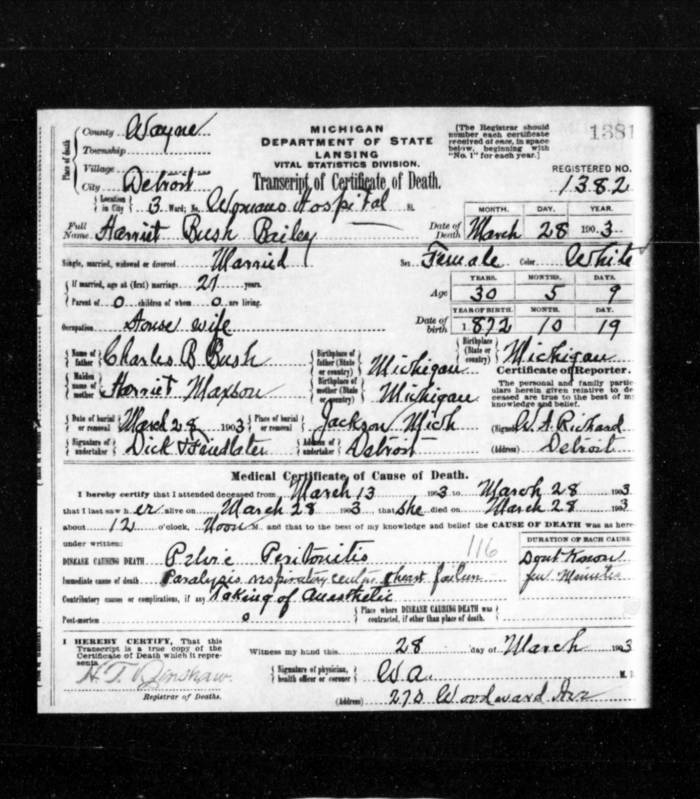 MICHIGAN
DEPARTMENT OF STATE
LANSING
VITAL STATISTICS DIVISION.
Transcript of Certificate of Death.
[The Registrar should
number each certificate
received of once, in space
below, beginning with
"No. 1" for each year.]
1381
REGISTERED NO.
1382
Place of death
County Wayne
Township
Village
City Detroit
Location in City 3 Ward; No. Womans Hospital St.
Full Name Harriet Bush Bailey
Date of Death MONTH. March DAY. 28 YEAR. 1903
Single, married, widowed or divorced Married
Sex Female Color White
If married, age at (first) marriage 21 years.
Age YEARS. 30 MONTHS. 5 DAYS. 9
Parent of 0 children of whom 0 are living.
Occupation House wife
Date of birth YEAR OF BIRTH. 1872 MONTH. 10 DAY. 19
Name of father Charles B Bush
Birthplace of father (State or country) Michigan
Birthplace (State or country) Michigan
Maiden name of mother Harriet Maxson
Birthplace of mother (State or country) Michigan
Certificate of Reporter.
The personal and family partic
ulars herein given relative to de
ceased are true to the best of my
knowledge and belief.
Date of burial or removal March 28 1903 Place of burial or removal Jackson Mich
(Signed) W. A. Richard
Signature of undertaker Dick Address of undertaker Detroit
(Address) Detroit
Medical Certificate of Cause of Death.
I hereby certify that I attended deceased from March 13 1903 to March 28 1903
that I last saw her alive on March 28 1903, that she died on March 28 1903
about 12 o'clock, Noon M., and that to the best of my knowledge and belief the CAUSE OF DEATH was as here
under written:
DURATION OF EACH CAUSE
DISEASE CAUSING DEATH Pelvic Peritonitis 116 Dont Know
Immediate cause of death Paralysis respiratory center & heart failure few Minutes
Contributory causes or complications, if any Taking of Anasthetic
Post-mortem 0 Place where DISEASE CAUSING DEATH was contracted, if other than place of death.
I HEREBY CERTIFY, That this
Transcript is a true copy of the
Certificate of Death which it repre-
sents.
H. T. Renshaw.
Registrar of Deaths.
Witness my hand this 28 day of March 1903
Signature of physician, health officer or coroner W A. M. D
(Address) 270 Woodward Ave